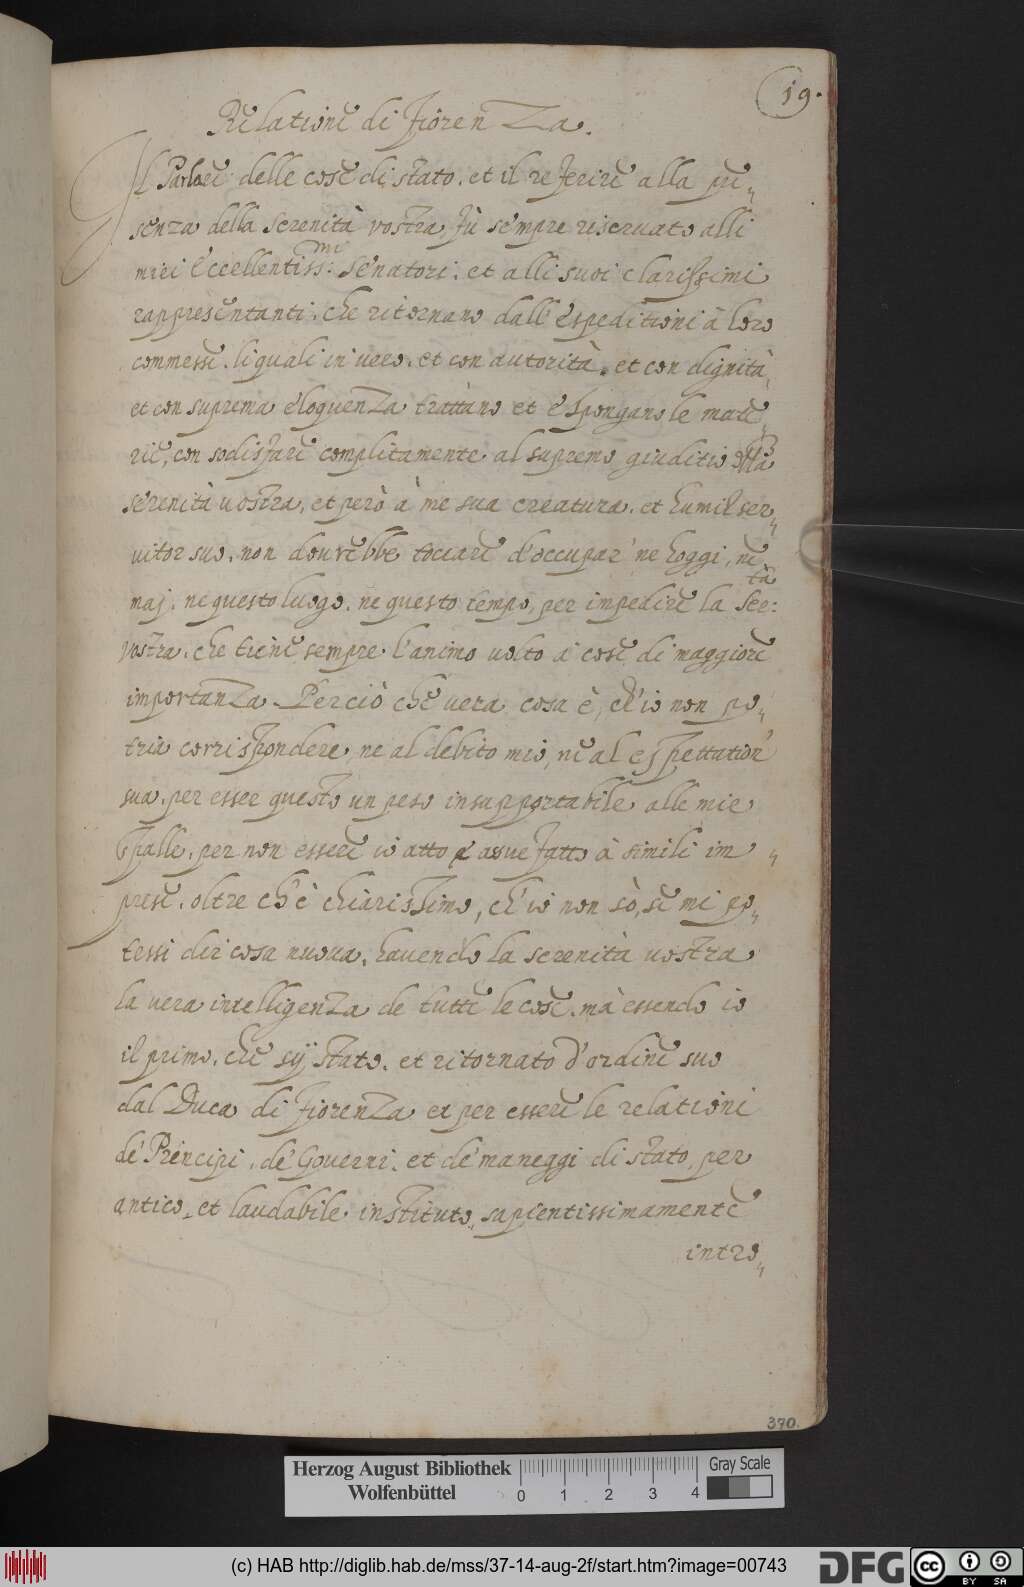 19.
Relatione di Fiorenza.
Il Parlare delle cose di stato. et il referire alla pre„
senza della serenità vostra, fù sempre riseruato alli
miei Eccellentiss:mi senatori. et alli suoi clarissimi
rappresentanti. che ritornano dall'espeditioni à loro
commesse. li quali in uero. et con autorità. et con dignità,
et con suprema eloquenza trattano et espongano le mate„
rie, con sodisfare complitamente al supremo giuditio della
serenità uostra, et però à me sua creatura. et humil ser„
uitor suo. non dourebbe toccare d'occupar' ne hoggi, ne
maj. ne questo luogo. ne questo tempo, per impedire la Ser:tà
vostra. che tiene sempre l'animo uolto à cose di maggiore
importanza. Perciò che uera cosa è, ch'io non po„
tria corrispondere, ne al debito mio, ne al espettation'
sua. per esser questo un peso insupportabile alle mie
spalle. per non essere io atto e assuefatto à simili im„
prese. oltre ch'è chiarissimo, ch'io non sò, se mi po„
tessi dir cosa nuoua. hauendo la serenità uostra
la uera intelligenza de tutte le cose. mà essendo io
il primo. che sij stato. et ritornato d'ordine suo
dal Duca di fiorenza et per essere le relationi
de' Principi. de' Gouerni. et de' maneggi di stato, per
antico. et laudabile instituto, sapientissimamente
intro„
370.
Herzog August Bibliothek
Wolfenbüttel
0 1 2 3 4
Gray Scale
(c) HAB http://diglib.hab.de/mss/37-14-aug-2f/start.htm?image=00743
DFG
cc BY SA